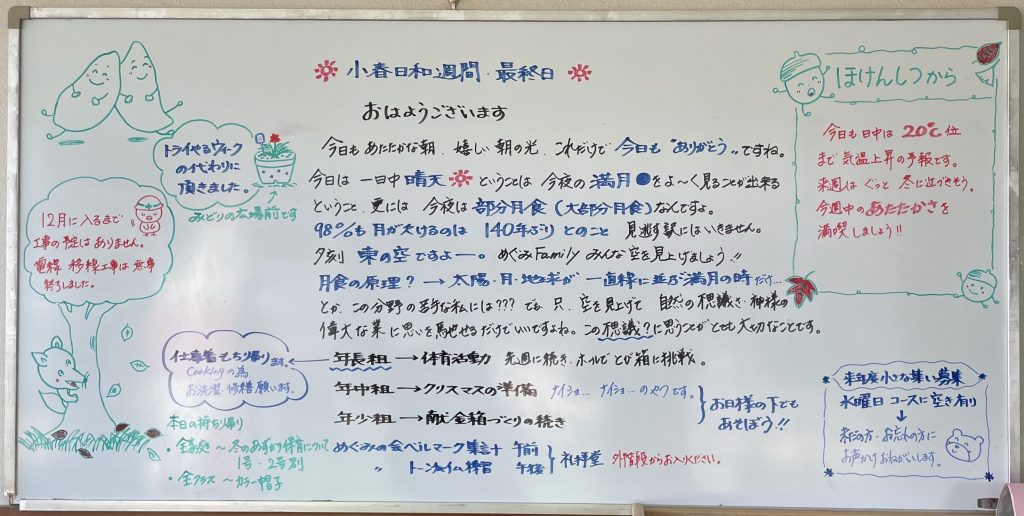 小春日和週間・最終日
おはようございます
今日もあたたかな朝、嬉しい朝の光、これだけで今日も"ありがとう"ですね。
今日は一日中晴天ということは今夜の満月をよ〜く見ることが出来る
ということ、更には今夜は部分月食(大部分月食)なんですよ。
98%も月が欠けるのは140年ぶりとのこと見逃す訳にはいきません。
夕刻東の空ですよー。めぐみFamilyみんな空を見上げましょう!!
月食の原理?→太陽・月・地球が一直線に並ぶ満月の時だけ…
とか、この分野の苦手な私には???でも、只、空を見上げて自然の不思議さ・神様の
偉大な業に思いを馳せるだけでいいですよね。この不思議?に思うことがとても大切なことです。
年長組→体育活動 先週に続き、ホールでとび箱に挑戦。
年中組→クリスマスの準備 ナイショ…ナイショ…のやつです。
年少組→献金箱づくりの続き
お日様の下でも
あそぼう!!
めぐみの会ベルマーク集計 午前
〃 トーンチャイム練習 午後
礼拝堂 外階段からお入りください。
トライやるウィーク
の代わりに
頂きました。
みどりの広場前です
12月に入るまで
工事の予定はありません。
電線移線工事は無事
終了しました。
仕事着もち帰り
Cookingの為
お洗濯・修繕願います。
本日の持ち帰り
・全家庭〜冬のあずかり保育について
1号・2号別
・全クラス〜カラー帽子
ほけんしつから
今日も日中は20℃位
まで気温上昇の予報です。
来週はぐっと冬に近づきそう。
今週中のあたたかさを
満喫しましょう!!
来年度小さな集い募集
水曜日コースに空き有り
↓
未だの方・お忘れの方に
お声かけおねがいします。